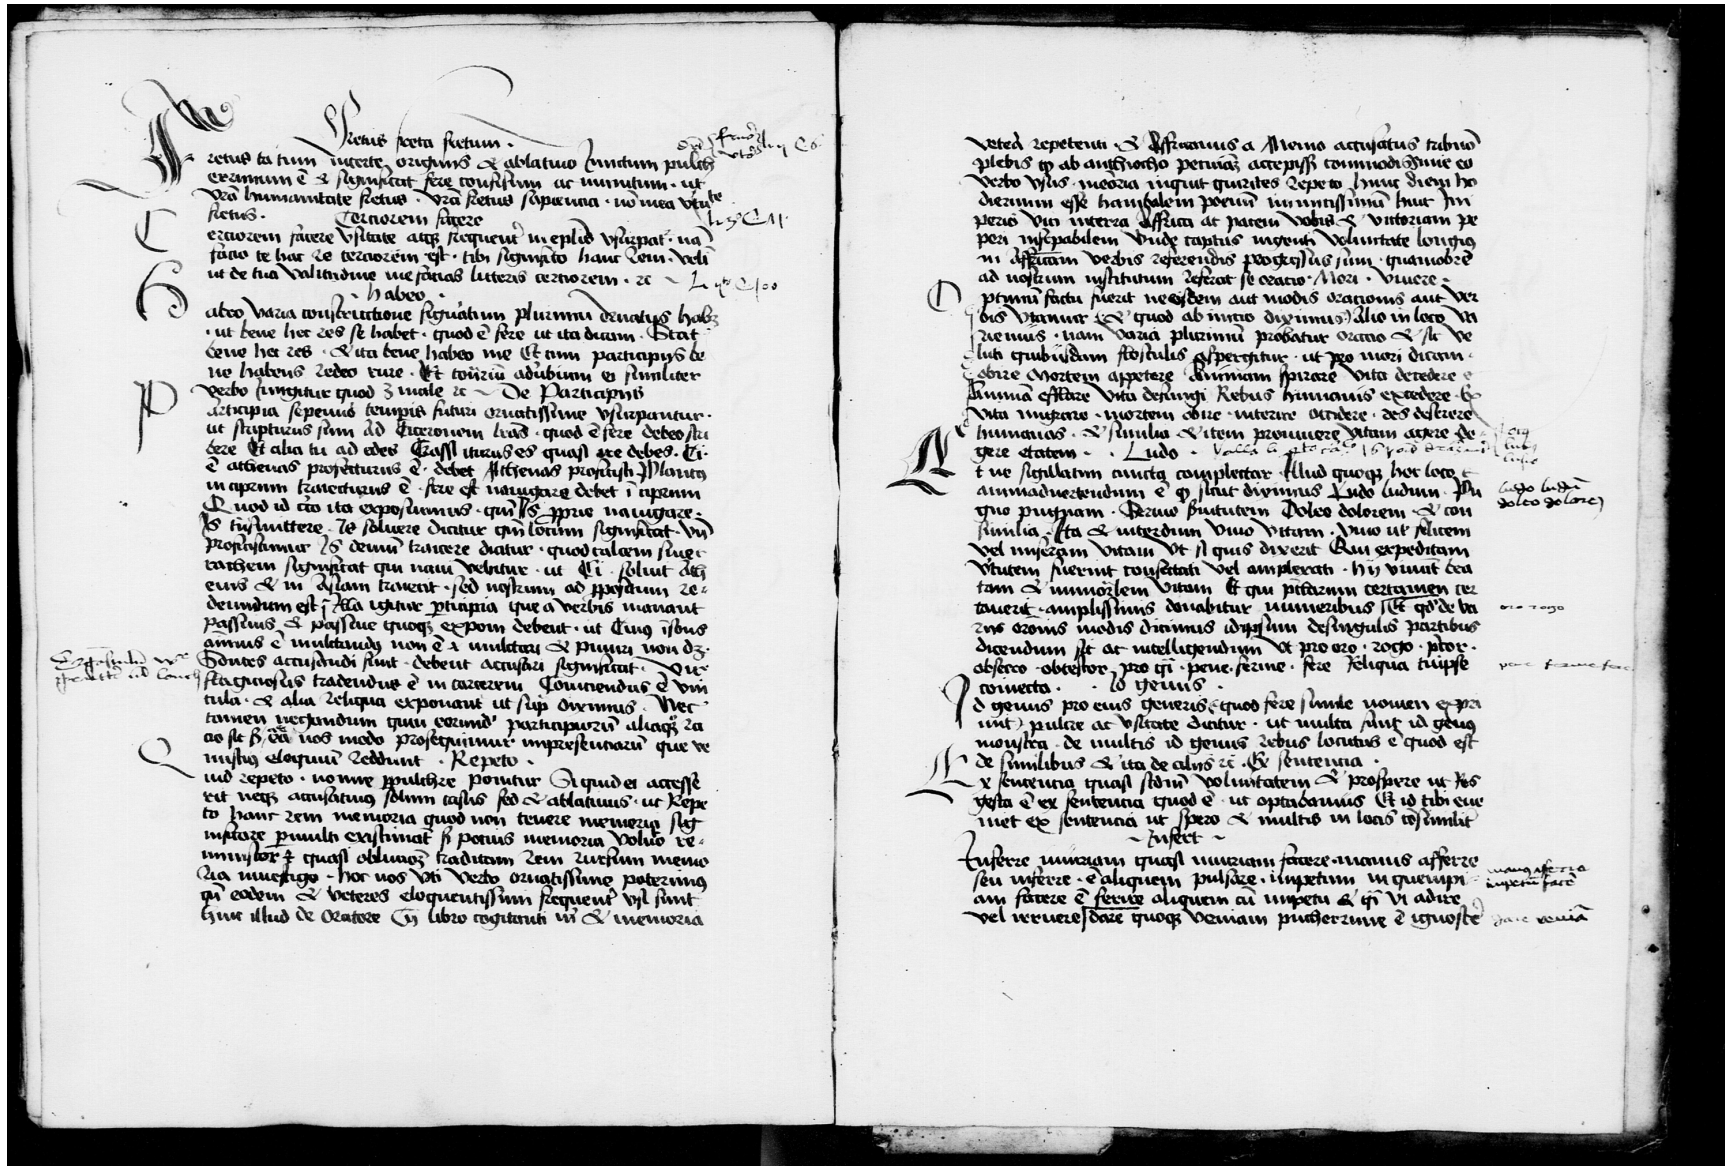 Fretus freta fretum ·
retus ta tum incerte originis & ablatiuo Iunctum pulch
errimum ē & significat fere confisum ac munitum · ut
vrā humanitate fretus · vrā fretus sapiencia · nō mea vtute
fretus · Cerciorem facere
erciorem facere vsitate atqȝ frequent̄ in eplīs vsurpat̄ · nā
facio te hac re cerciorem · est · tibi significo hanc rem · velī
ut de tua valitudine me facias litteris cerciorem · rc
· habeo ·
abeo varia constructione figuratum plurimū ornatus habȝ
· ut bene hec res se habet · quod ē fere ut ita dicam · Stat
bene hec res · & ita bene habeo me Et cum participijs be
ne habens redeo rure · Et aduerbium ei similiter
verbo iungitur quod ē male rc De Participijs
articipia sepenūo tempis futuri ornatissime vsurpantur ·
ut scripturus sum ad Ciceronem lrās · quod ē fere debeo scri
bere Et alia tu ad edes Crassi iturus es quasi ire debes · Ci ·
ē athenas profecturus ē · debet Athenas proficisci Plancus
in ciprum traiecturus ē · fere est nauigare debet ī ciprum
Quod id cō ita exposuimus · qm̄ Is pprie nauigare ·
Is trāsmittere · Is soluere dicitur qui locum significat · vn̄
proficiscimur Is demū traicere dicitur · quod calcem siue
rathem significat qui naui vehitur · ut Ci · soluit Ath
enis & in Asiam traiecit · sed nostrum ad ppositum re-
deundum est Illa igitur pticipia que a verbis manant
passiuis & passiue quoqȝ exponi debent · ut Cuius īsons
animus ē mulctandus non ē · mulctari & puniri non dȝ ·
Sontes accusandi sunt · debent accusari significat · Vir
flagiciosus tradendus ē in carcerem Coniciendus ē vin
cula · & alia reliqua exponant ut sup diximus · Nec
tamen negandum quin eorund' participiorū aliaqȝ ra
cio sit ſȝ eā nos modo prosequimur impresenciarū que ve
nustius eloquium reddunt · Repeto ·
uid repeto · nonne ppulchre ponitur Siquid ei accesse
rit neqȝ accusatiuus solum casus sed & ablatiuus · ut Repe
to hanc rem memoria quod non tenere memoria sig
nificare pmulti existimāt ſȝ pocius memoria voluo re-
miniscor & quasi obliuiōi traditam rem rursum memo
ria inuestigo · hoc nos vti verbo ornatissime poterimus
qū eodem & veteres eloquentissimi frequent̄ vsi sunt
hinc illud de Oratore Cȳ libro cogitanti mī & memoria
veterā repetenti · & Affricanus a Memo accusatus tribunū
plebis qȝ ab anthiocho pecuniā accepisȝ commodissime eo
verbo vsus · meoria inquit quirites repeto hunc diem ho
diernum esse hanibalem poenū inimicissimū huic Im
perio vici in terra Affrica ac pacem vobis & victoriam pe
peri insepabilem Vnde captus ingenti voluntate longius
in affricam verbis referendis progressus sum · quamobrē
ad nostrum institutum referat se oracio · Mori · viuere ·
ptimū factu fuerit ne eisdem aut modis oracionis aut ver
bis vtamur & quod ab inicio diximus Alio in loco va
riemus · nam varia plurimū probatur oracio & sic ve
luti quibusdam flosculis aspergitur · ut pro mori dicam ·
obire Mortem appetere Animam spirare vita decedere
Animā efflare vita defungi Rebus humanis excedere · Ex
vita migrare · mortem obire · interire occidere · res deserere
humanas · & similia & item pro viuere vitam agere de
gere etatem · · Ludo ·
t ne sigillatim cuncta complectar · Illud quoqȝ hoc loco
animaduertendum ē qȝ sicut diximus Ludo ludum · Pu
gno pugnam · Seruio seruitutem Doleo dolorem · & con
similia Ita & interdum viuo vitam · viuo ut felicem
vel miseram vitam vt si quis dixerit Qui expeditam
vtutem fuerint consectati vel amplexati · hij viuūt bea
tam & immortalem vitam Et qui certamen cer
tauerit · amplissimis donabitur muneribus Et qd' de va
riis oronis modis dicimus idipsum de singulis partibus
dicendum sit ac intelligendum Vt pro oro · rogo · p̄cor ·
obsecro · obtestor pro qī · pene · ferme · fere Reliqua tuipse
coniecta · · Id genus ·
d genus pro eius generis quod fere simile nomen expri
mit pulcre ac vsitate dicitur · ut multa sunt id genus
monstra · de multis id genus rebus locutus ē quod est
de similibus & ita de alijs rc · Ex sentencia ·
x sentencia quasi scdm̄ voluntatem & prospere ut Res
gesta ē ex sentencia quod ē · ut optabamus Et id tibi eue
niet ex sentencia ut spero & multis in locis cōsimilit̄
Infert
Inferre iniuriam quasi iniuriam facere · manus afferre
seu inferre · ē aliquem pulsare · impetum in quempi
am facere ē ferire aliquem cū impetu & qī vi adire
vel irruere dare quoqȝ veniam pucherrime ē ignoscē
ludo ludū
doleo dolorē
oro rogo
pene ferme fere
manus afferre
impetū facē
dare veniā